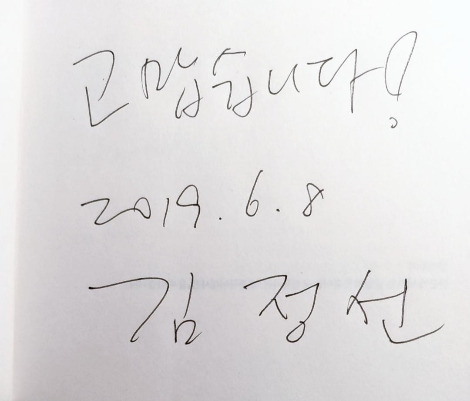 고맙습니다!
2019.6.8
김정선